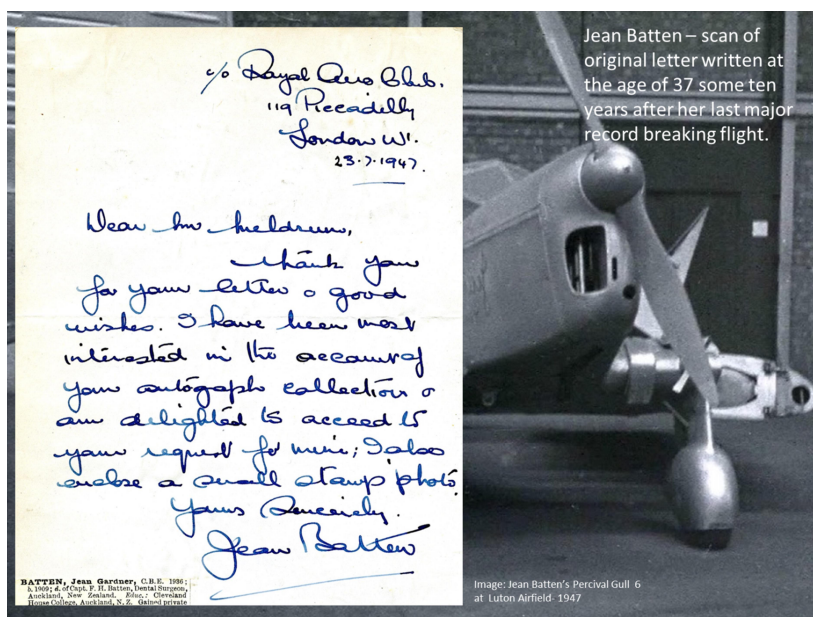 c/o Royal Aero Club.
119 Piccadilly
London W1.
23.7.1947.
Dear Mr Meldrum,
Thank you
for your letter & good
wishes. I have been most
interested in the account of
your autograph collection &
am delighted to acceed to
your request for mine; I also
enclose a small stamp photo.
Yours Sincerely.
Jean Batten
BATTEN, Jean Gardner, C.B.E. 1936;
b. 1909; d. of Capt. F. H. Batten, Dental Surgeon,
Auckland, New Zealand. Educ.: Cleveland
House College, Auckland, N. Z. Gained private
Jean Batten – scan of
original letter written at
the age of 37 some ten
years after her last major
record breaking flight.
Image: Jean Batten's Percival Gull 6
at Luton Airfield- 1947